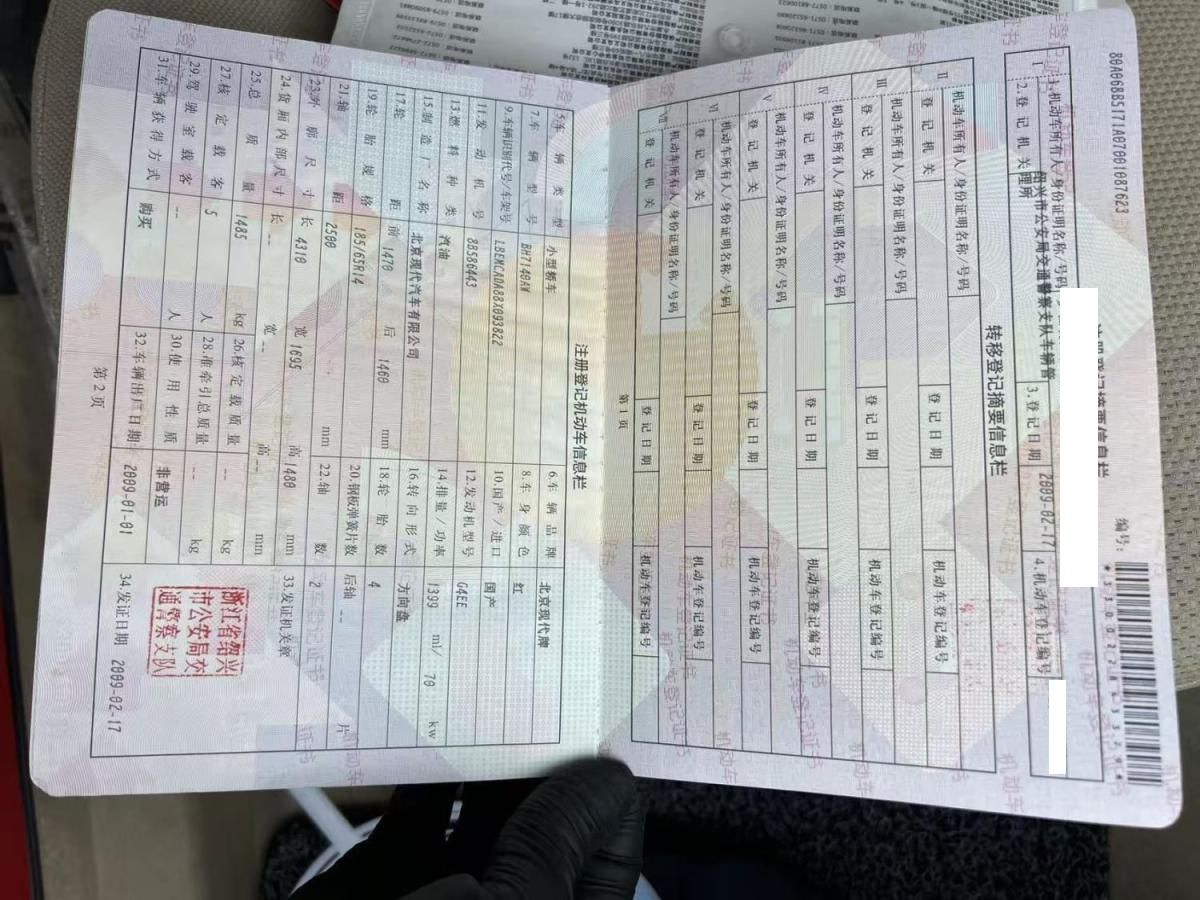 80A068B5171A07001087623
编号:
注册登记摘要信息栏
I
1.机动车所有人/身份证明名称/号码
2.登记机关
绍兴市公安局交通警察支队车辆管理所
3.登记日期
2009-02-17
4.机动车登记编号
转移登记摘要信息栏
II
机动车所有人/身份证明名称/号码
登记机关
登记日期
机动车登记编号
III
机动车所有人/身份证明名称/号码
登记机关
登记日期
机动车登记编号
IV
机动车所有人/身份证明名称/号码
登记机关
登记日期
机动车登记编号
V
机动车所有人/身份证明名称/号码
登记机关
登记日期
机动车登记编号
VI
机动车所有人/身份证明名称/号码
登记机关
登记日期
机动车登记编号
VII
机动车所有人/身份证明名称/号码
登记机关
登记日期
机动车登记编号
第1页
注册登记机动车信息栏
5.车辆类型 小型轿车 6.车辆品牌 北京现代牌
7.车辆型号 BH7140AW 8.车身颜色 红
9.车辆识别代号/车架号 LBEMCADA88X093822 10.国产/进口 国产
11.发动机号 8B586443 12.发动机型号 G4EE
13.燃料种类 汽油 14.排量/功率 1399 ml/ 70 kw
15.制造厂名称 北京现代汽车有限公司 16.转向形式 方向盘
17.轮距 前 1470 后 1460 mm 18.轮胎数 4
19.轮胎规格 185/65R14 20.钢板弹簧片数 后轴 -- 片
21.轴距 2500 mm 22.轴数 2
23.外廓尺寸 长 4310 宽 1695 高 1480 mm 33.发证机关章
24.货厢内部尺寸 长 -- 宽 -- 高 -- mm
25.总质量 1485 kg 26.核定载质量 -- kg
27.核定载客 5 人 28.准牵引总质量 -- kg
29.驾驶室载客 -- 人 30.使用性质 非营运
31.车辆获得方式 购买 32.车辆出厂日期 2009-01-01 34.发证日期 2009-02-17
浙江省绍兴
市公安局交
通警察支队
第2页